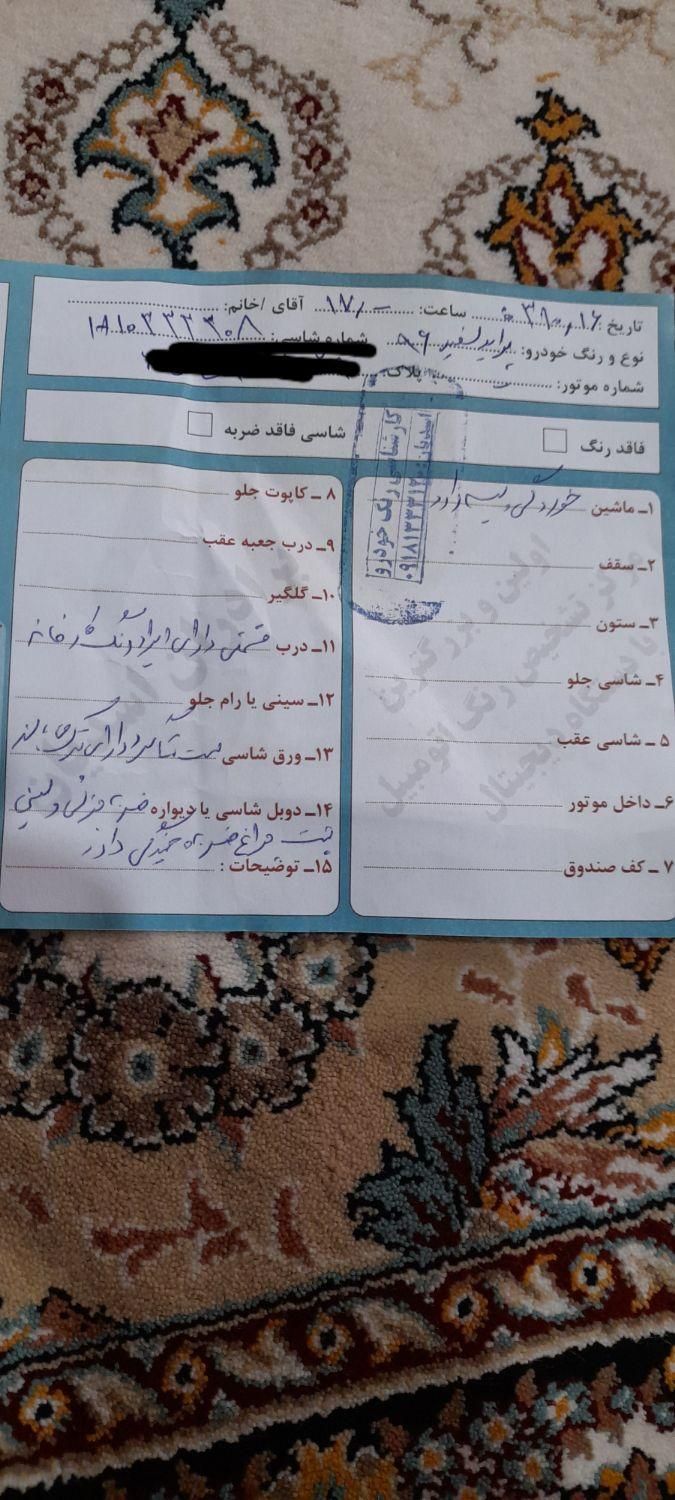 تاریخ: ۱۶ ساعت: ۱۷/- آقای /خانم:
نوع و رنگ خودرو: پراید سفید ۸۹ شماره شاسی:
شماره موتور: پلاک:
فاقد رنگ
شاسی فاقد ضربه
کارشناسی رنگ خودرو
۱ـ ماشین خوردگی و لیسه دارد
۲ـ سقف
۳ـ ستون
۴ـ شاسی جلو
۵ ـ شاسی عقب
۶ـ داخل موتور
۷ ـ کف صندوق
۸ ـ کاپوت جلو
۹ـ درب جعبه عقب
۱۰ـ گلگیر
۱۱ـ درب قسمتی دارای ایراد رنگ کارخانه
۱۲ـ سینی یا رام جلو
۱۳ـ ورق شاسی
۱۴ـ دوبل شاسی یا دیواره ضربه و سینی
پشت چراغ ضربه خمیدگی دارد
۱۵ـ توضیحات :
اولین و بزرگترین
مرکز تشخیص رنگ اتومبیل
با دستگاه دیجیتال